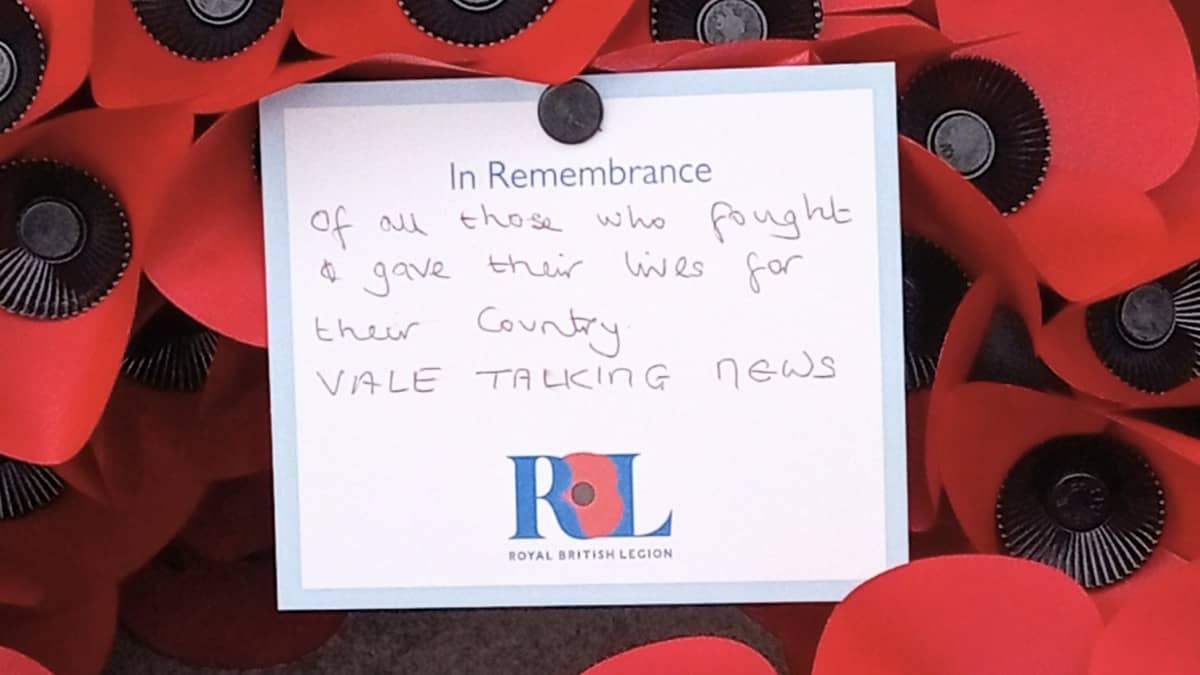 In Remembrance
Of all those who fought
& gave their lives for
their Country.
VALE TALKING NEWS
RBL
ROYAL BRITISH LEGION